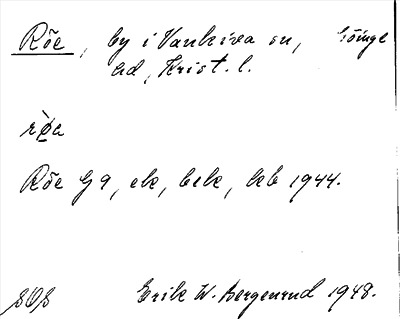 Röe, by i Vankiva sn, Göinge
hd, Krist. l.
rø̀a
Röe G 9, ek, bebk, lkb 1944.
Erik W. Bergenrud 1948.